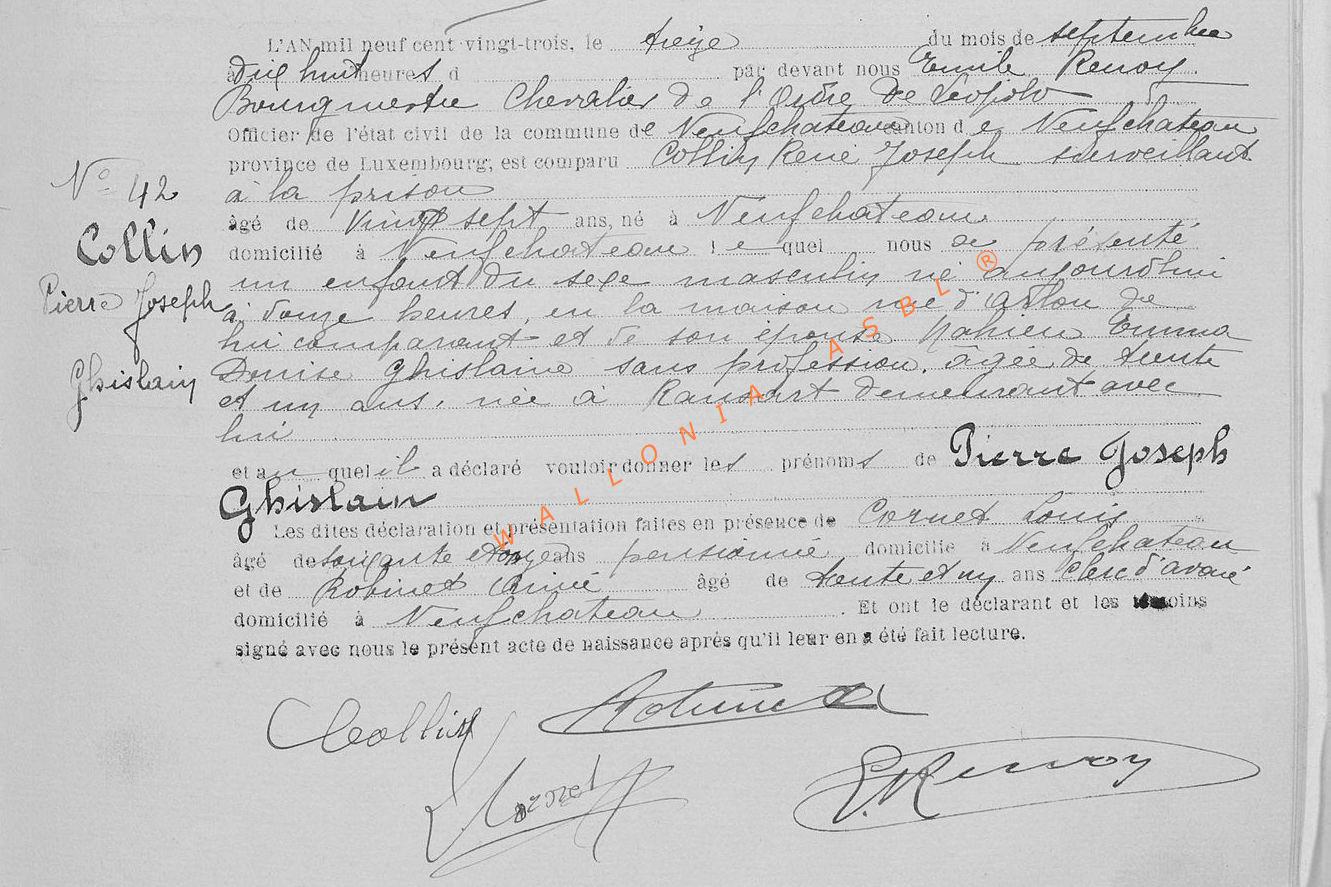 L'AN mil neuf cent vingt-trois, le treize du mois de septembre
à Dix huit heures d par devant nous Emile Renoy.
Bourgmestre Chevalier de l'Ordre de Léopold
Officier de l'état civil de la commune de Neufchateau canton de Neufchateau
province de Luxembourg, est comparu Collin René Joseph surveillant
à la prison
âgé de vingt sept ans, né à Neufchateau
domicilié à Neufchateau lequel nous a présenté
un enfant du sexe masculin né aujourd'hui
à douze heures, en la maison rue d'Arlon de
lui comparant et de son épouse Mahieu Emma
Denise Ghislaine sans profession, âgée de trente
et un ans, née à Ransart demeurant avec
lui
et auquel il a déclaré vouloir donner les prénoms de Pierre Joseph
Ghislain
Les dites déclaration et présentation faites en présence de Cornet Louis
âgé de soixante et onze ans pensionné domicilié à Neufchateau
et de Robinet Aimé âgé de trente et un ans clerc d'avoué
domicilié à Neufchateau. Et ont le déclarant et les témoins
signé avec nous le présent acte de naissance après qu'il leur en a été fait lecture.
N° 42
Collin
Pierre Joseph
Ghislain
WALLONIA ASBL ®
Collin
Cornet
E. Renoy